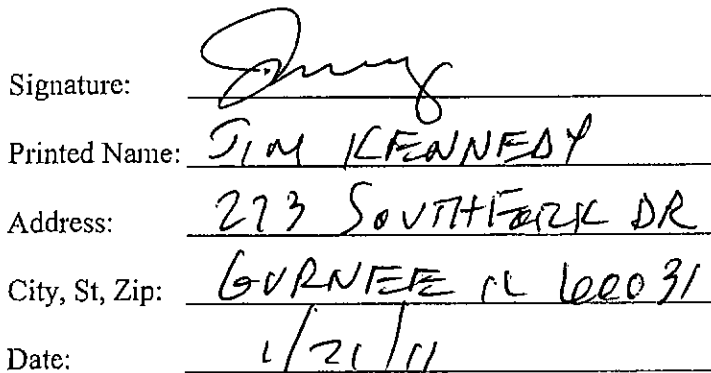 Signature:
Printed Name: JIM KENNEDY
Address: 273 SOUTHFORK DR
City, St, Zip: GURNEE IL 60031
Date: 1/21/11